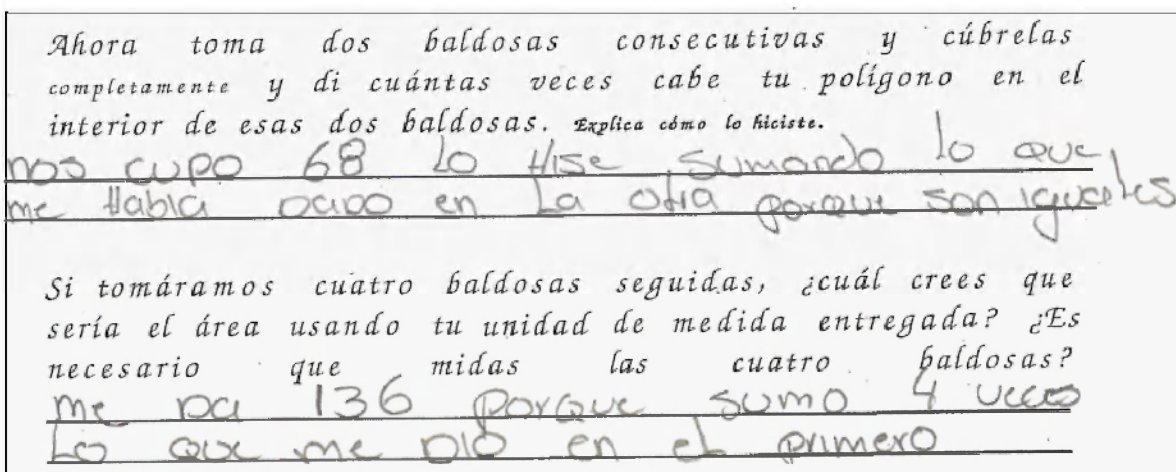 Ahora toma dos baldosas consecutivas y cúbrelas
completamente y di cuántas veces cabe tu polígono en el
interior de esas dos baldosas. Explica cómo lo hiciste.
nos cupo 68 lo Hise sumando lo que
me Habia dado en La otra porque son iguales
Si tomáramos cuatro baldosas seguidas, ¿cuál crees que
sería el área usando tu unidad de medida entregada? ¿Es
necesario que midas las cuatro baldosas?
me Da 136 porque sumo 4 veces
Lo que me DIO en el primero